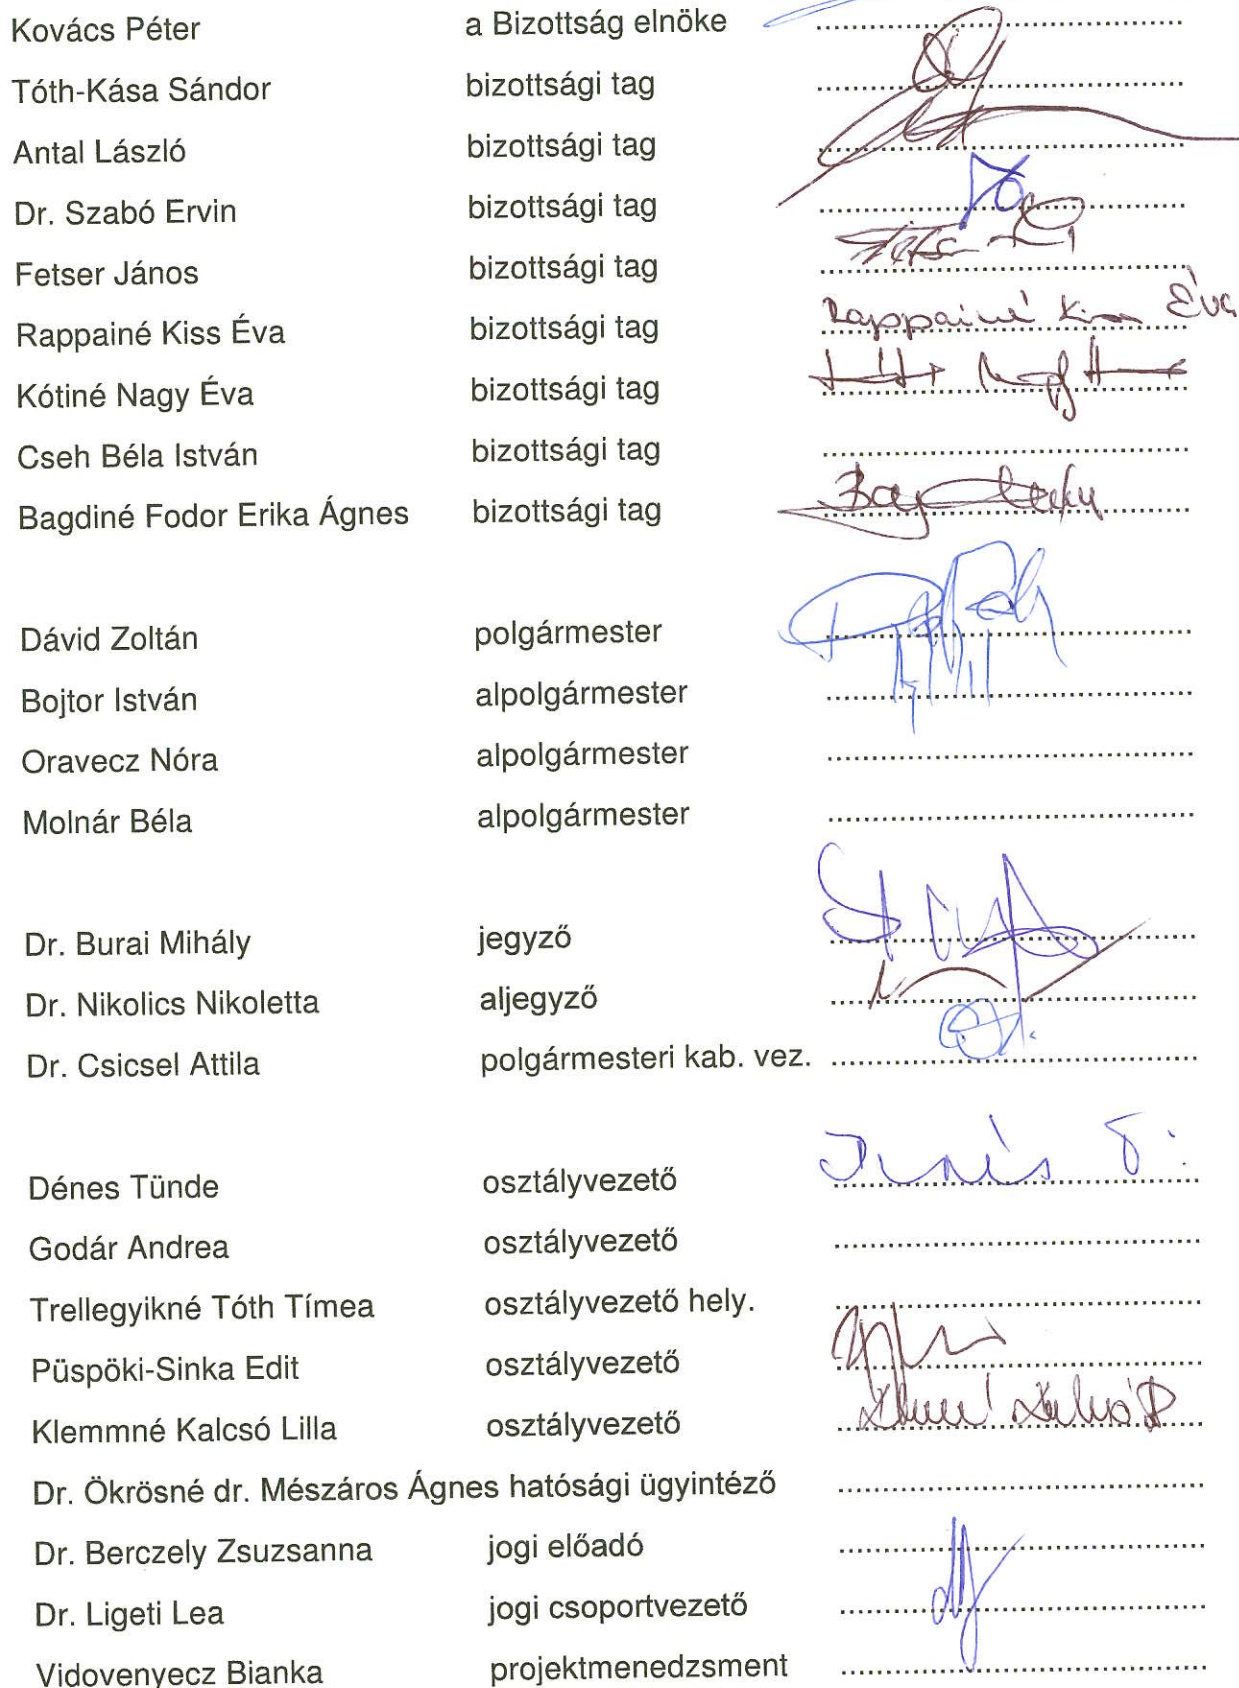 Kovács Péter a Bizottság elnöke
Tóth-Kása Sándor bizottsági tag
Antal László bizottsági tag
Dr. Szabó Ervin bizottsági tag
Fetser János bizottsági tag
Rappainé Kiss Éva bizottsági tag Rappainé Kiss Éva
Kótiné Nagy Éva bizottsági tag
Cseh Béla István bizottsági tag
Bagdiné Fodor Erika Ágnes bizottsági tag
Dávid Zoltán polgármester
Bojtor István alpolgármester
Oravecz Nóra alpolgármester
Molnár Béla alpolgármester
Dr. Burai Mihály jegyző
Dr. Nikolics Nikoletta aljegyző
Dr. Csicsel Attila polgármesteri kab. vez.
Dénes Tünde osztályvezető
Godár Andrea osztályvezető
Trellegyikné Tóth Tímea osztályvezető hely.
Püspöki-Sinka Edit osztályvezető
Klemmné Kalcsó Lilla osztályvezető
Dr. Ökrösné dr. Mészáros Ágnes hatósági ügyintéző
Dr. Berczely Zsuzsanna jogi előadó
Dr. Ligeti Lea jogi csoportvezető
Vidovenyecz Bianka projektmenedzsment